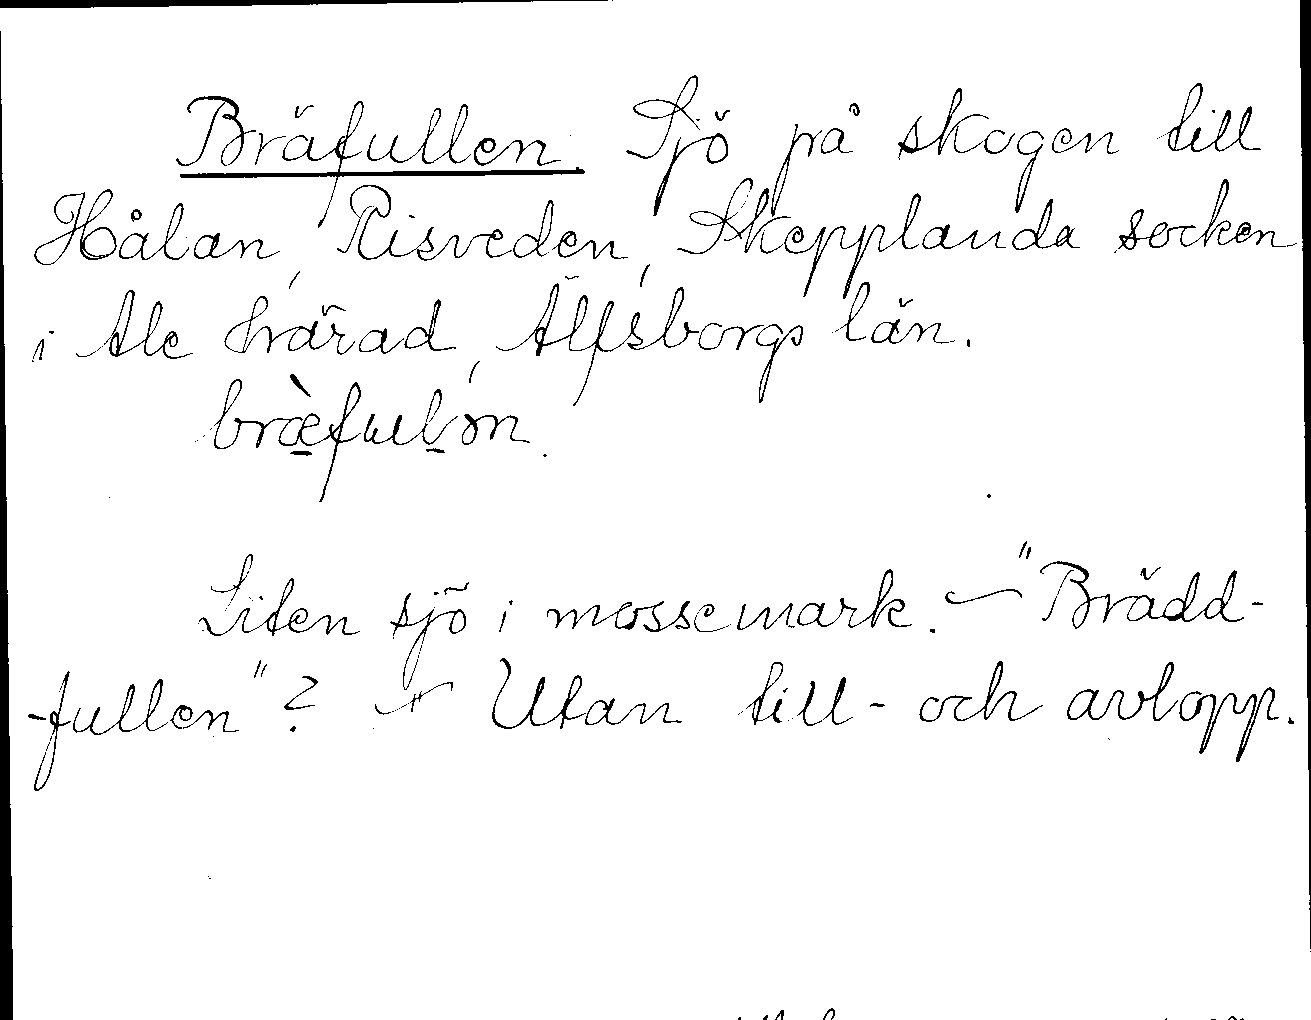 Bräfullen. Sjö på skogen till
Hålan, Risveden, Skepplanda socken
i Ale härad, Älfsborgs län.
Liten sjö i mossemark. — "Brädd-
-fullen"? — Utan till- och avlopp.